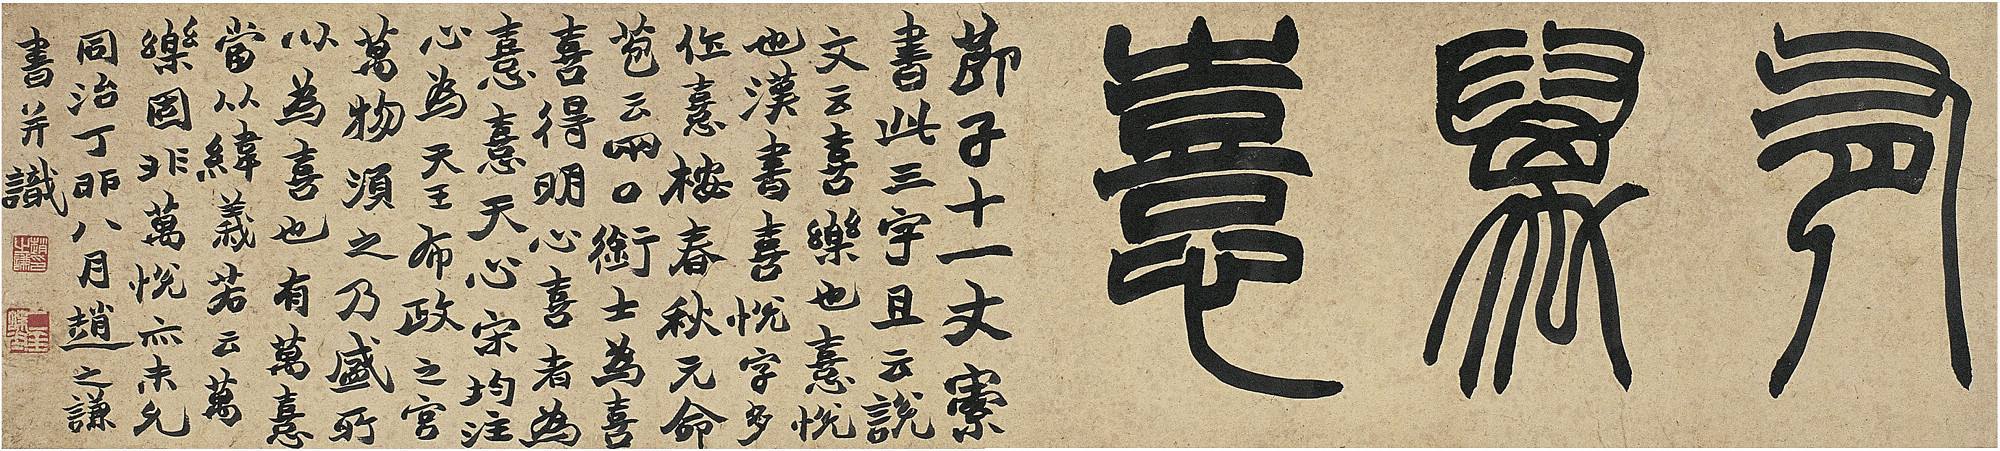 有萬憙
莭子十一丈索
書此三字且云說
文云喜樂也憙悅
也漢書喜悅字多
作憙桉春秋元命
苞云兩口銜士為喜
喜得明心喜者為
憙憙天心宋均注
心為天王布政之宮
萬物須之乃盛所
以為喜也有萬憙
當从緯義若云萬
樂固非萬悅亦未允
同治丁卯八月趙之謙
書并識
趙之謙印